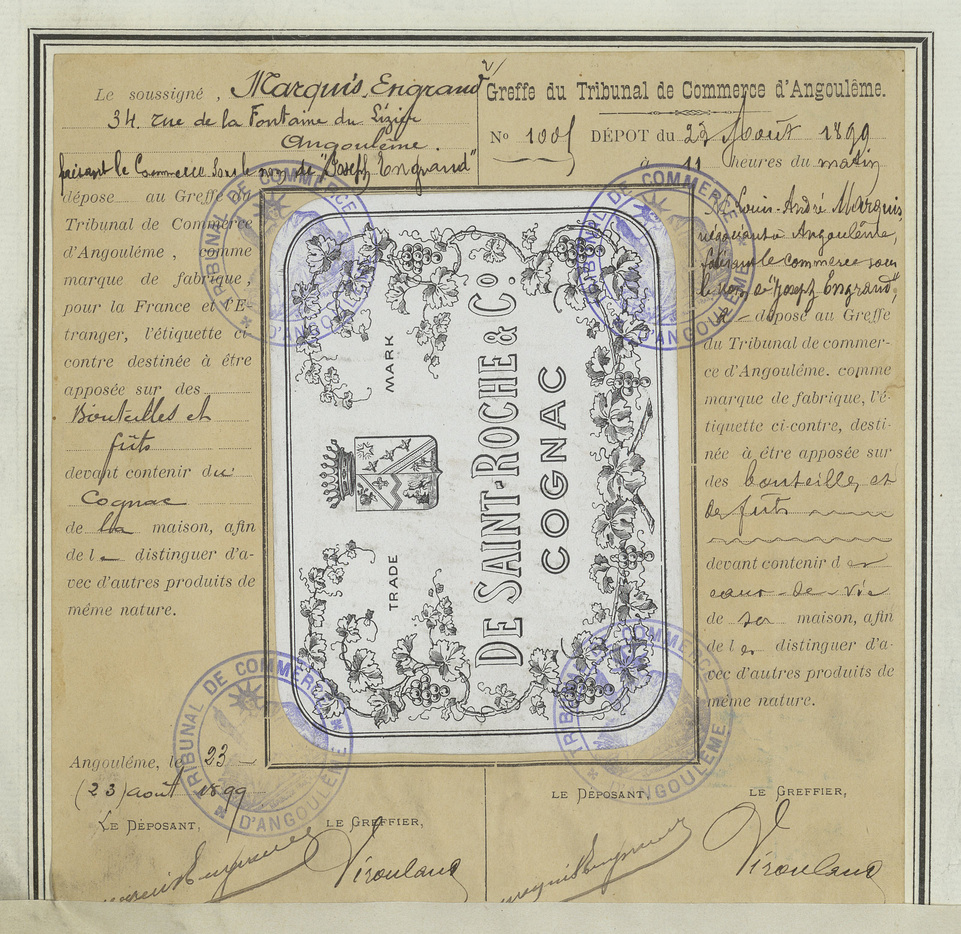 Le soussigné, Marquis Engrand
34, rue de la Fontaine du Lizier
Angoulême.
faisant le Commerce sous le nom de "Joseph Engrand"
dépose au Greffe du
Tribunal de Commerce
d'Angoulême, comme
marque de fabrique,
pour la France et l'É-
tranger, l'étiquette ci-
contre destinée à être
apposée sur des
Bouteilles et
fûts
devant contenir du
Cognac
de la maison, afin
de l distinguer d'a-
vec d'autres produits de
même nature.
Angoulême, le 23
(23) août 1899
LE DÉPOSANT,
LE GREFFIER,
Viroulaud
TRADE MARK
DE SAINT-ROCHE & Co.
COGNAC
Greffe du Tribunal de Commerce d'Angoulême.
No 1005 DÉPOT du 23 Août 1899
à 11 heures du matin
M. Louis-André Marquis,
négociant à Angoulême,
faisant le commerce sous
le nom de "Joseph Engrand",
a déposé au Greffe
du Tribunal de commer-
ce d'Angoulême. comme
marque de fabrique, l'é-
tiquette ci-contre, desti-
née à être apposée sur
des bouteilles et
de fûts
devant contenir des
eaux-de-vie
de sa maison, afin
de les distinguer d'a-
vec d'autres produits de
même nature.
LE DÉPOSANT,
LE GREFFIER,
Viroulaud
TRIBUNAL DE COMMERCE
D'ANGOULÊME
TRIBUNAL DE COMMERCE
D'ANGOULÊME
TRIBUNAL DE COMMERCE
D'ANGOULÊME
TRIBUNAL DE COMMERCE
D'ANGOULÊME